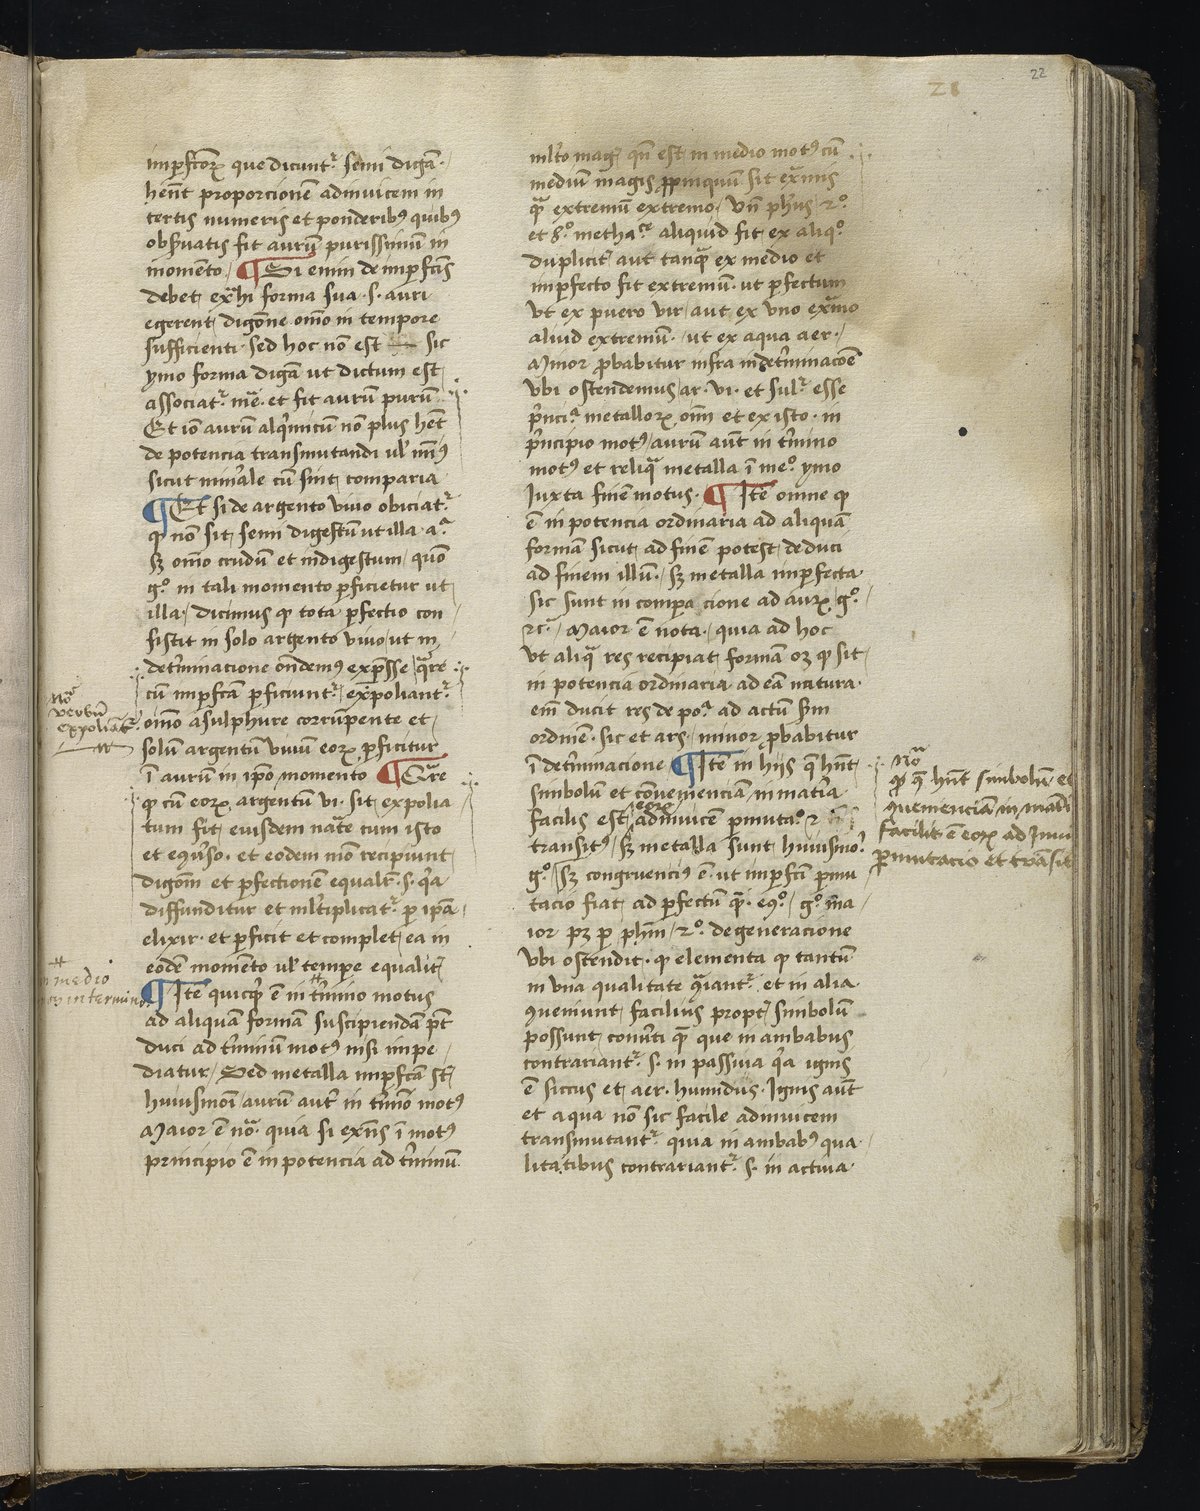 22
21
imp̄fctoꝝ que dicunt᷑ semi digā·
hēnt proporcionē adinuicem in
certis numeris et ponderibꝰ quibꝰ
obẜuatis fit aurū purissimū in
momēto· ¶ Si enim de imp̄fctīs
debet, exꝰhi forma sua ·s· auri
egerent digōne om̄o in tempore
sufficienti· sed hoc nō est sic
ymo forma digā ut dictum est
associat᷑ mē· et fit aurū purū
Et iō aurū alqͥmicū nō plus hēt
de potencia transmutandi ul' mīꝰ
sicut minͣale cū sint comparia
¶ Et si de argento viuo obiciat᷑
ꝙ nō sit semi digestū ut illa· aͬ
sꝫ om̄o crudū et indigestum quō
gͦ in tali momento p̄ficietur ut
illa· dicimus ꝙ tota p̄fectio con
sistit in solo argento viuo ut in
det̄minacione ondemꝰ exp̄sse qͣre
cū imp̄fcā p̄ficiunt᷑, expoliant᷑
om̄o a sulphure corrūpente et
solū argentū viuū eoꝝ p̄ficitur
ī aurū in ip̄o momento ¶ Qͣre
ꝙ cū eoꝝ argentū vi· sit expolia
tum fit eiusdem nāte cum isto
et eqͦuͥso· et eodem mō recipiunt
digōm et p̄fectionē equalr̄ ·s· qͥa
diffunditur et ml̄tiplicat᷑ p̄ ip̄ā
elixir· et p̄ficit et complet ea in
eodē momēto ul' tempe equalit᷑
¶ Itē quicqͥd ē in t̄mino motus
ad aliquā formā suscipiendā p̄t
duci ad t̄minū motꝰ nisi impe
diatur/ Sed metalla imp̄fcā sͭ
huiusmōi aurū autͥ in t̄mīo motꝰ
Maior ē nōͣ· quia si exn̄s ī motꝰ
principio ē in potencia ad t̄minū
Nōͣ
verbū
expoliātͬ
in medio
uo in termino
ml̄to magͥ qn̄ est in medio motꝰ cū
medium magis ꝓpinquū sit exͣmis
qͣ extremū extremo· Vn̄ ph̄us 2ͦ
et 8ͦ methaͬ· aliquid fit ex aliqͦ
duplicitͥ aut tanqͣ ex medio et
imp̄fecto fit extremū· ut p̄fectum
Vt ex puero vir aut ex vno exͣmo
aliud extremū· ut ex aqua aer·
Minor p̄babitur infra in det̄minacōe
Vbi ostendemus ar· vi· et sulͬ esse
p̄nciͣ metalloꝝ oīm et ex isto· in
p̄ncipio motꝰ aurū aūt in t̄mino
motꝰ et reliqͣ metalla ī meͦ ymo
Iuxta finē motus· ¶ Itē omne ꝙ
ē in potencia ordinaria ad aliquā
formā sicut ad finē potest deduci
ad finem illū· sꝫ metalla imperfecta
sic sunt in compa cione ad auꝝ gͦ·
2cͣ· Maior ē nota· quia ad hoc
Vt aliqͣ res recipiat formā oꝫ ꝙ sit
in potencia ordinaria ad eā natura·
em̄ ducit res de poͣ ad actū scm̄
ordinē· sic et ars· minor p̄babitur
ī det̄minacione ¶ Itē in hijs q̄ hn̄t
simbolū et cōueniencīa in matͥia
facilis est eoꝝ adinuicē p̄mutaͦ 2
transitꝰ/ sꝫ metalla sunt huiusmoͥ·
gͦ/ sꝫ congruenciꝰ ē· ut imp̄fcī p̄mu
tacio fiat ad p̄fectū qͣ· eqͦ· gͦ ma
ior pꝫ p̄ ph̄m/ 2ͦ· de generacione
Vbi ostendit· ꝙ elementa ꝙ tantū
in vna qualitate qͣiant᷑ et in alia
ꝯueniunt facilius proptͥ simbolū
possunt conuͥti qͣ que in ambabus
contrariant᷑ ·s· in passiua qͥa ignis
ē siccus et aer· humidus· Ignis aūt
et aqua nō sic facile adinuicem
transmutant᷑· quia in ambabꝰ qua
litatibus contrariant᷑ ·s· in actiua
Nōͣ
ꝙ q̄ hn̄t simbolū et
ꝯuenienciā in mate
facilis ē eoꝝ ad inui
p̄mutacio et trāsit